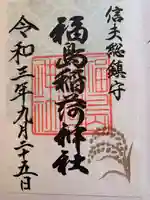 信夫総鎮守
福島稲荷神社
令和三年九月二十五日